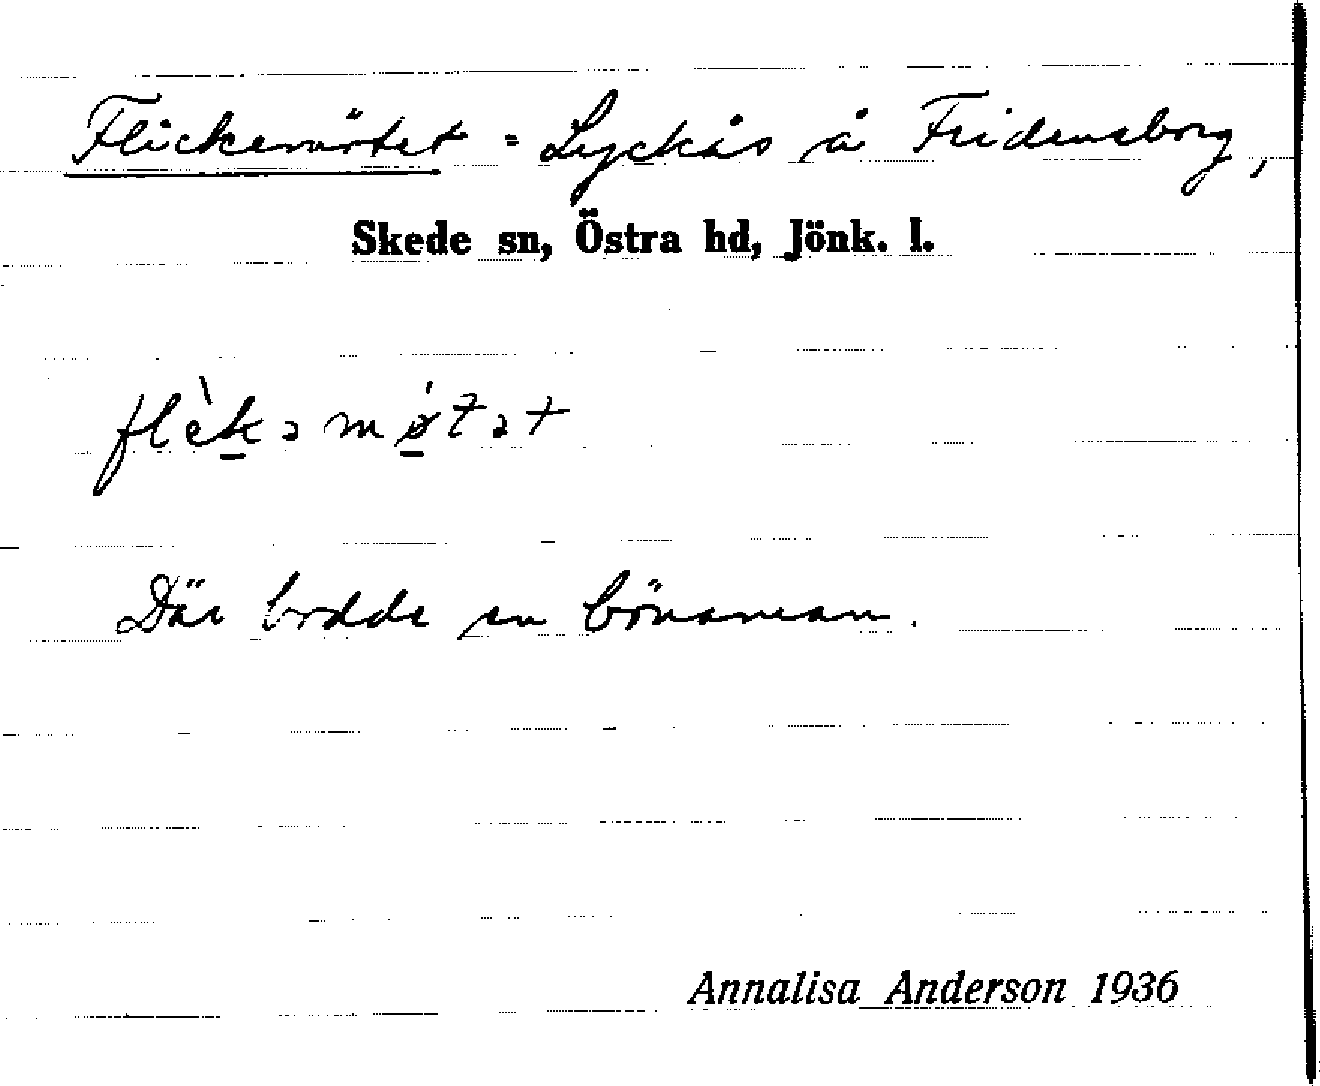 Flickemötet = Lyckås å Fridensborg,
Skede sn, Östra hd, Jönk. l.
flèkəmǿtət
Där bodde en böneman.
Annalisa Anderson 1936